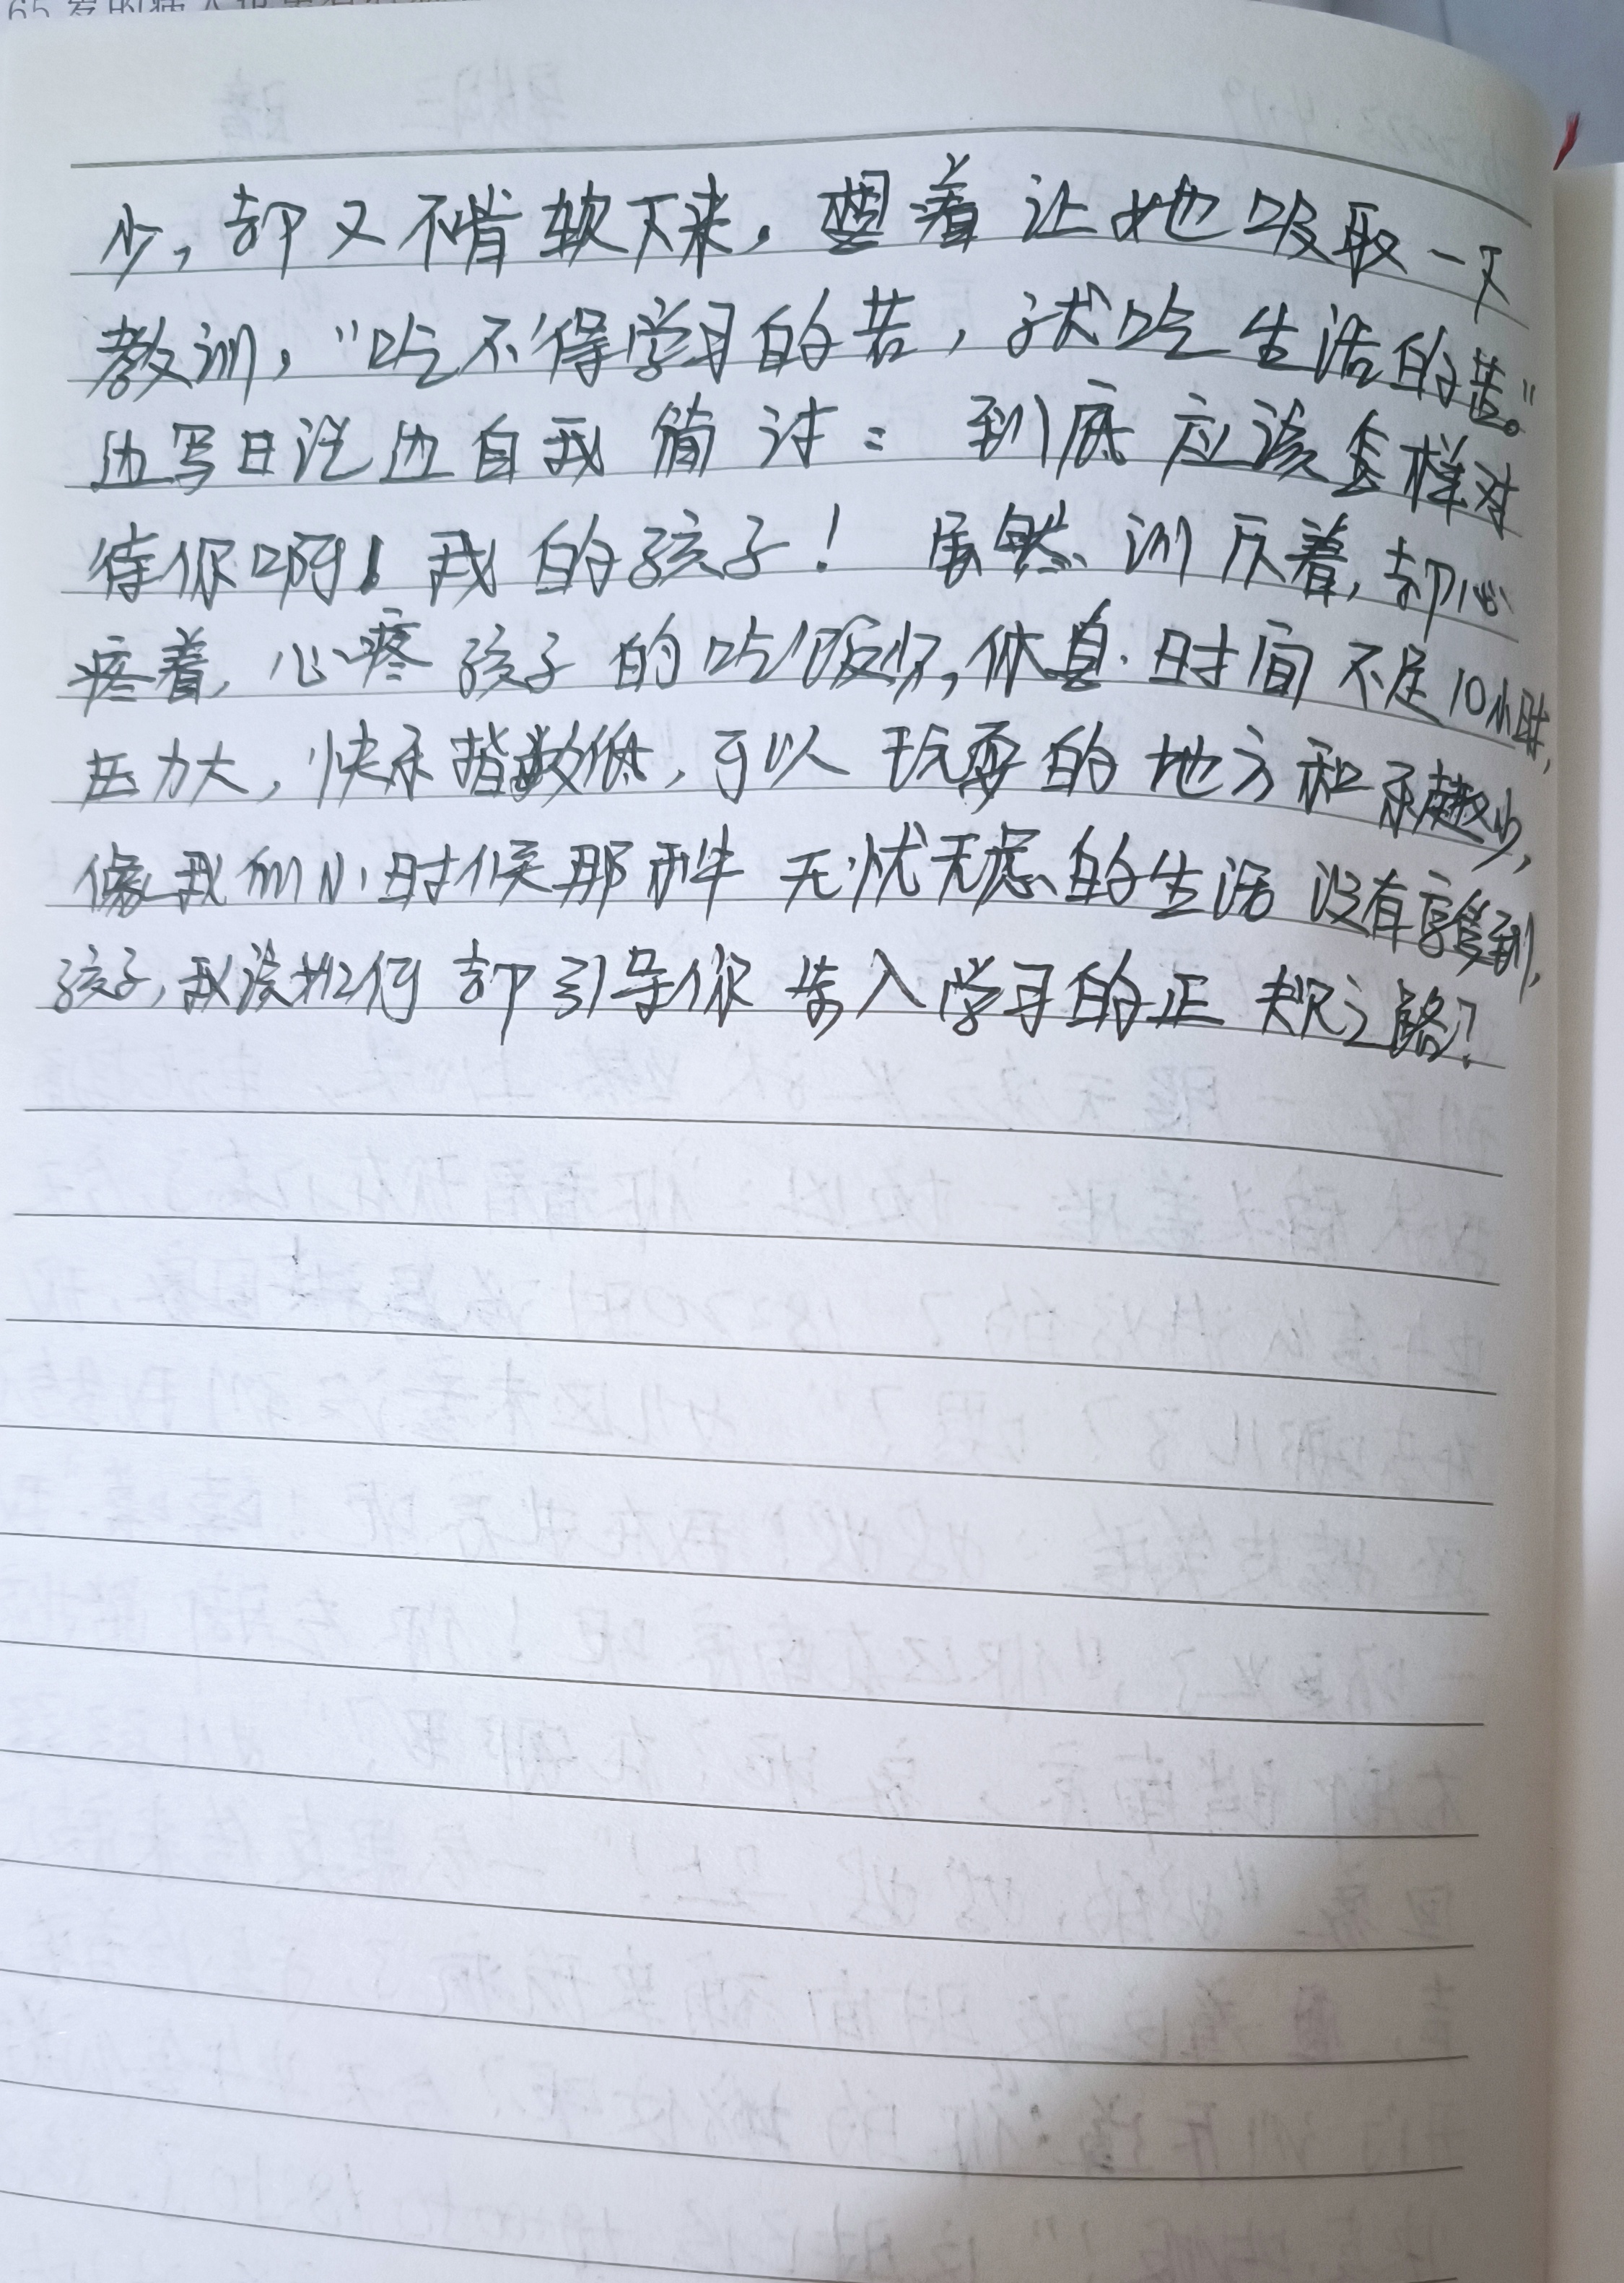 少，却又不肯软下来，想着让她吸取一下
教训，"吃不得学习的苦，就吃生活的苦。"
边写日记边自我简讨：到底应该怎样对
待你啊！我的孩子！虽然训斥着，却心
疼着，心疼孩子的吃饭少，休息时间不足10小时，
压力大，快乐指数低，可以玩耍的地方和乐趣少，
像我们小时候那样无忧无虑的生活没有享受到，
孩子，我该如何却引导你步入学习的正规之路？